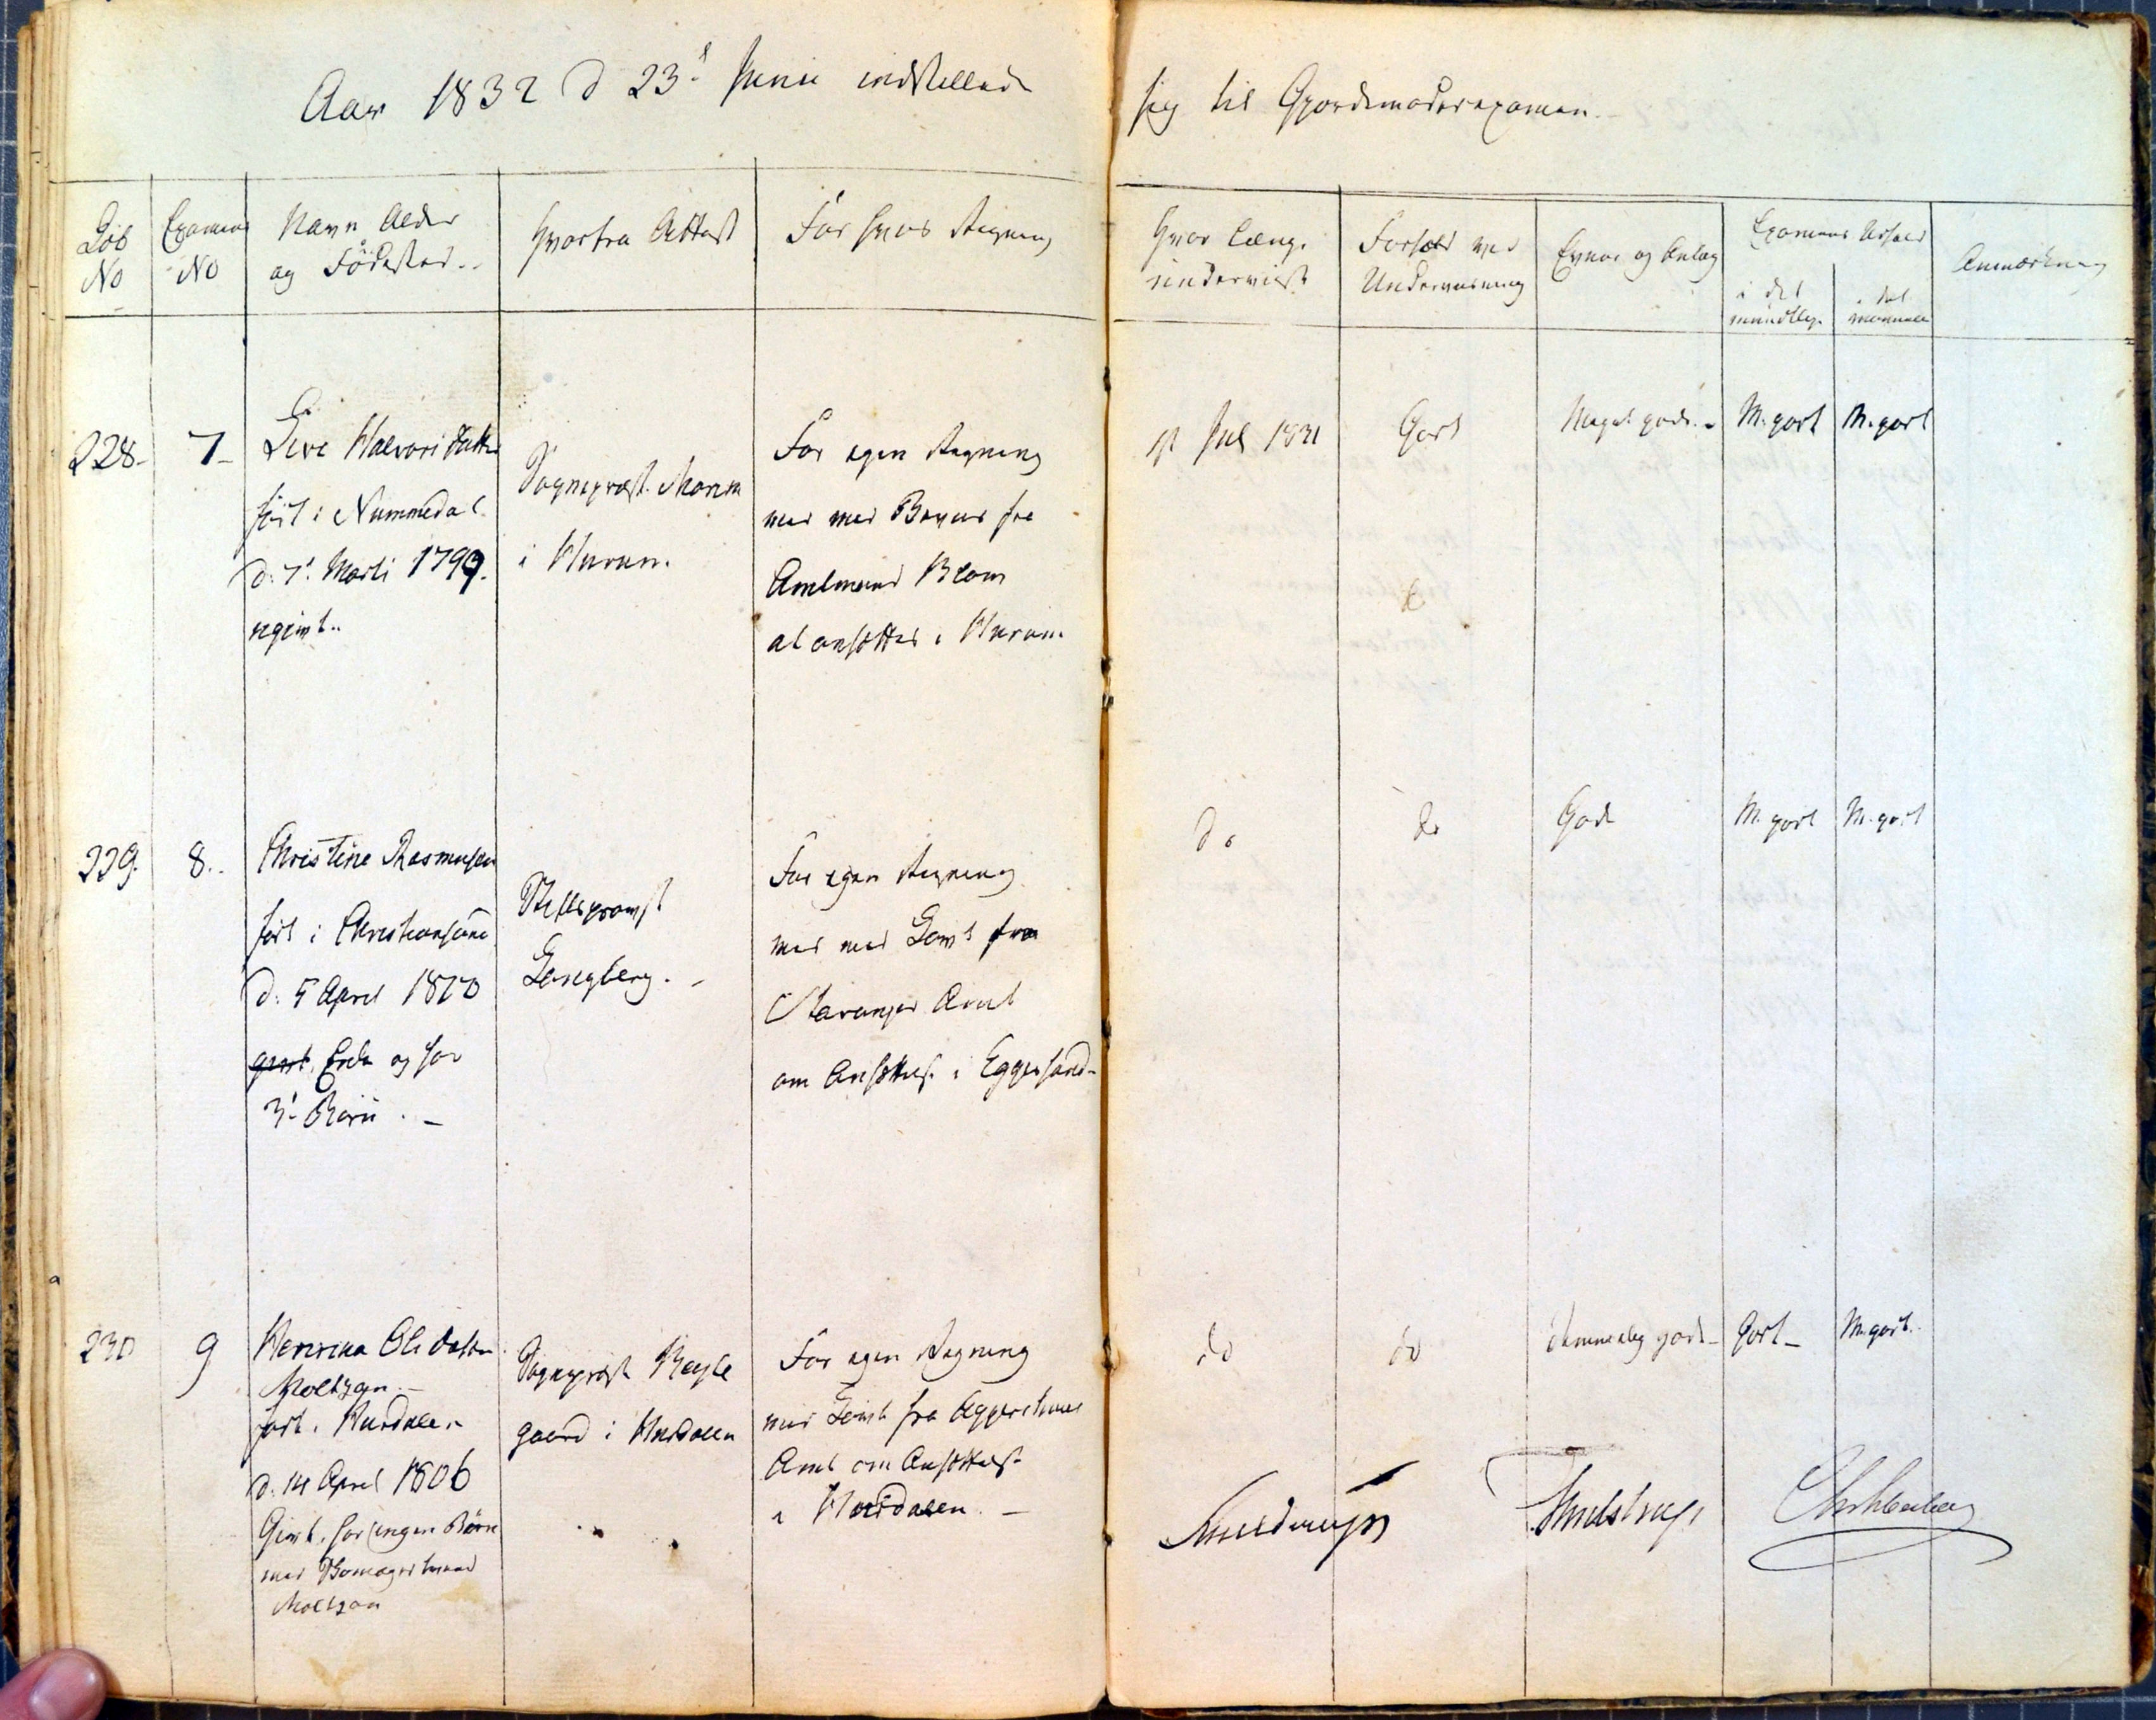 Aar 1832 d 23d Junii indstillede sig til Gjordemoderexamen.
Löb No
Examens No
Navn Alder og Födested..
Hvorfra Attest
For hvis Regning
Hvor længe underviist
Forhold ved Underviisning
Evner og Anlæg
Examens Udfald
i det mundtlige
i det manuelle
Anmærkning
228-
7-
Live Halvorsdatter
föd i Nummedal
d. 7d Marti 1799.
ugivt..
Sogneprest
i Hurum.
For egen Regning
men med Beviis fra
Amtmand Blom
at ansættes i Hurum
Jul 1831
Godt
Meget gode.-
M. godt
M. godt
229.
8..
Christine Rasmusen
föd i Christiansand
d. 5 April
givt, Enke og har
3d Börn. -
Stiftsprovst
Langberg. -
For egen Regning
men med Löwte fra
Stavanger Amt
om Ansættelse i Eggersund-
do
do
Gode
M. godt
M. godt
230
9
Olsdatter
Moltzen.-
födt i Hurdalen
d. 14 April 1806
Givt, har ingen Börn
med
Moltzen
Sogneprest
gaard i Hurdalen
For egen Regning
med Löwte fra Aggershuus
Amt om Ansættelse
i Hurdalen. -
do
do
temmelig gode-
Godt-
M. godt.
Thulstrup